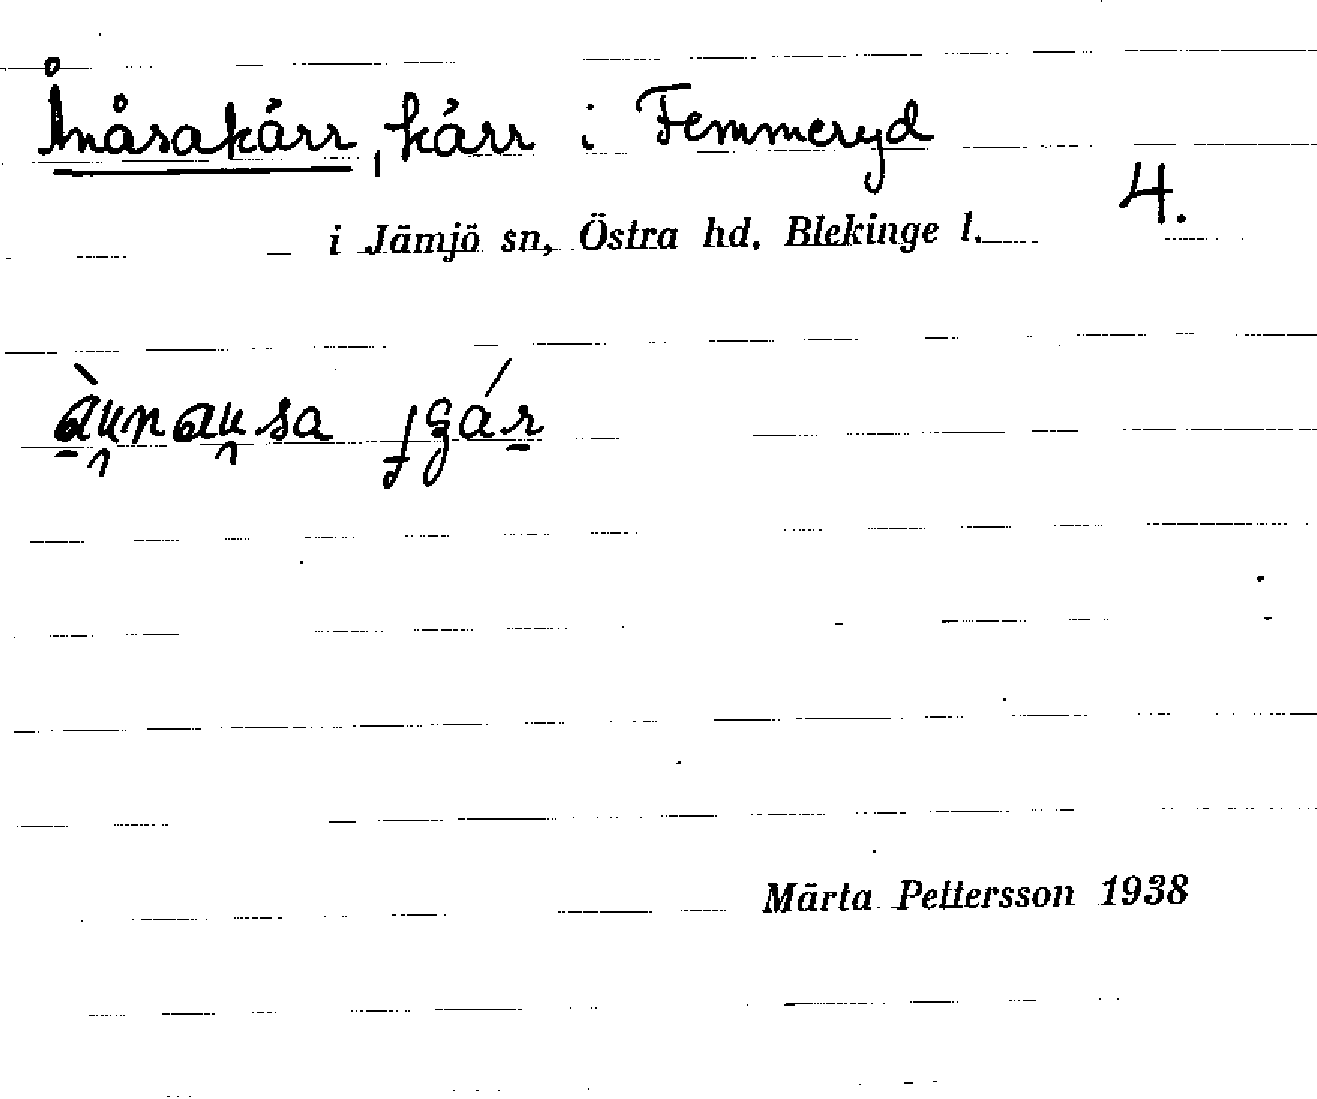 Ånåsakärr, kärr i Femmeryd
4.
i Jämjö sn, Östra hd. Blekinge l.
Märta Pettersson 1938